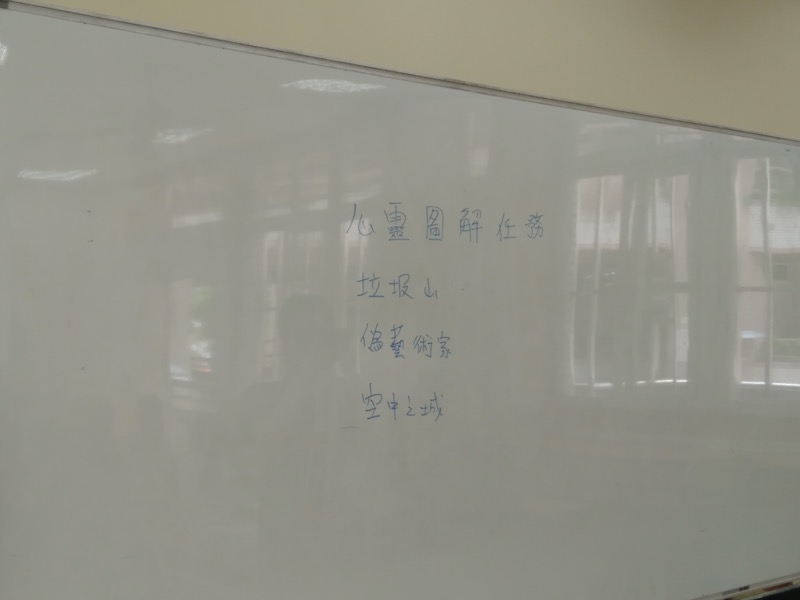 心靈圖解任務
垃圾山
偽藝術家
空中之城